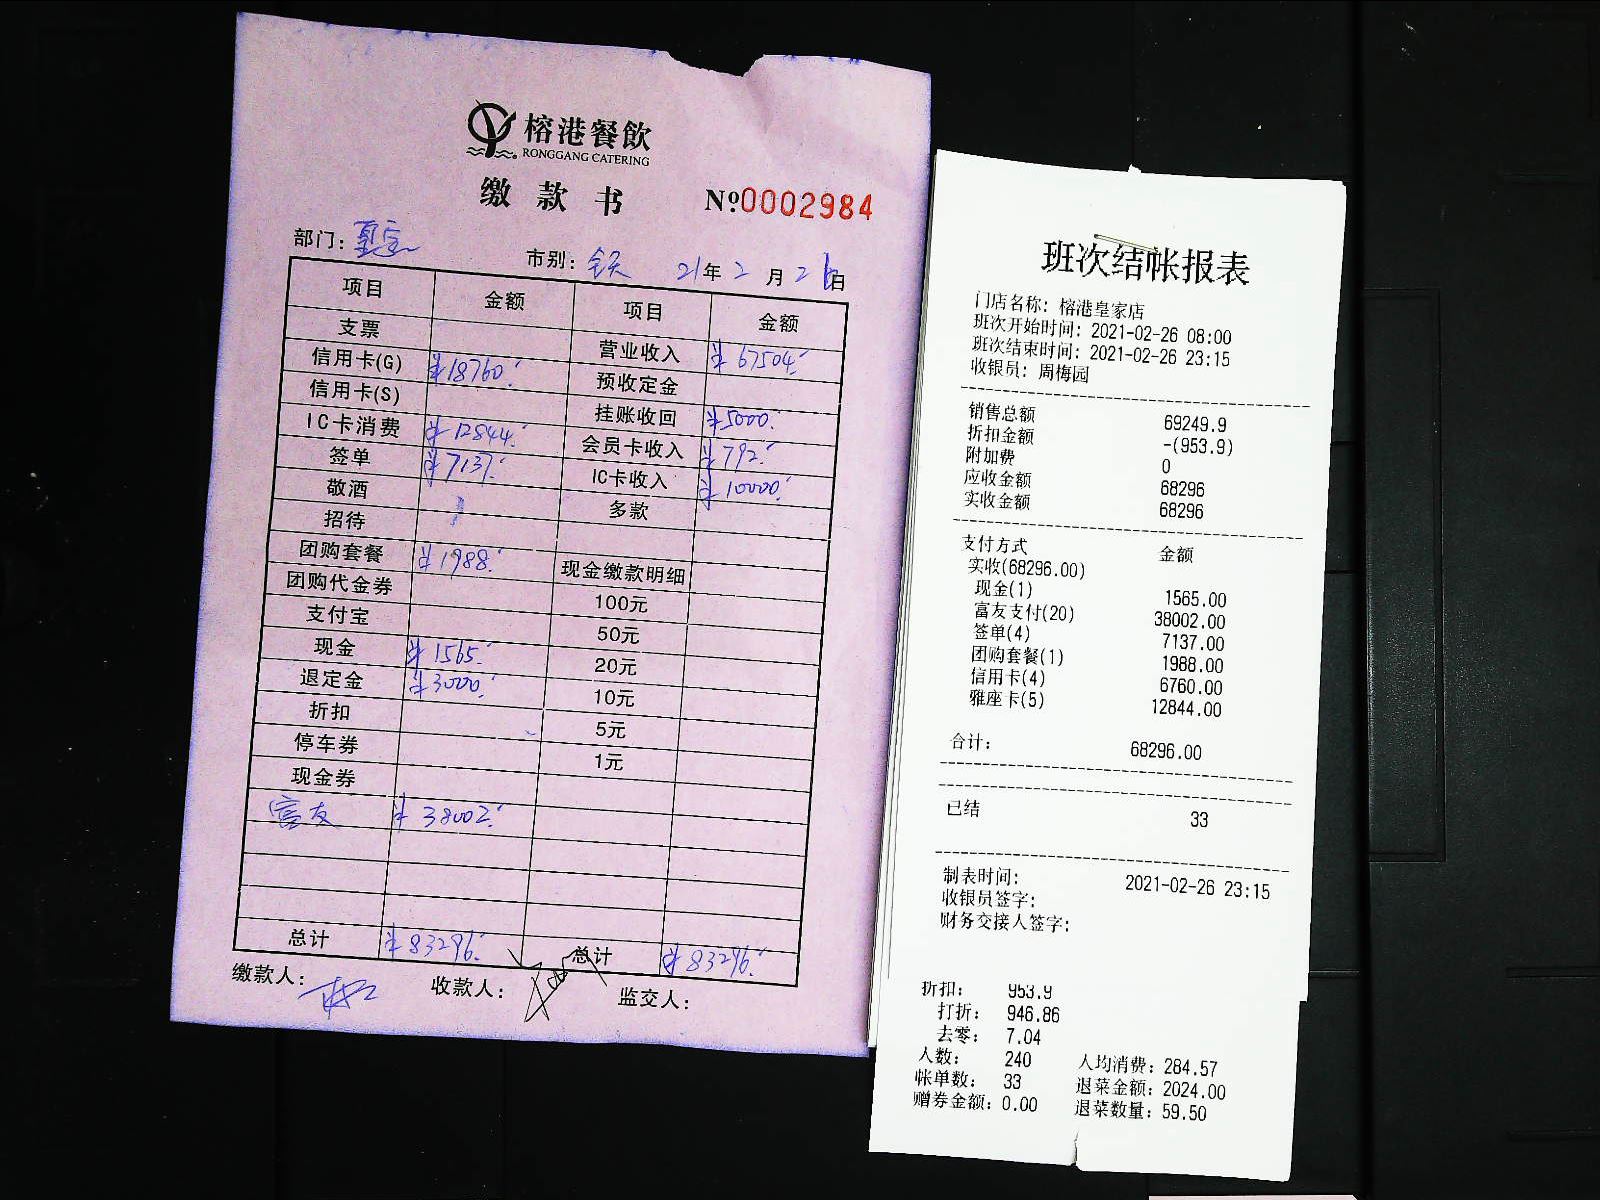 榕港餐飲
RONGGANG CATERING
缴款书 №0002984
部门: 皇家 市别: 全天 21年2月26日
项目 金额 项目 金额
支票 营业收入 ¥67504.-
信用卡(G) ¥18760.- 预收定金
信用卡(S) 挂账收回 ¥5000.-
IC卡消费 ¥12844.- 会员卡收入 ¥792.-
签单 ¥7137.- IC卡收入 ¥10000.-
敬酒 多款
招待
团购套餐 ¥1988.- 现金缴款明细
团购代金券 100元
支付宝 50元
现金 ¥1565.- 20元
退定金 ¥3000.- 10元
折扣 5元
停车券 1元
现金券
富友 ¥38002.-
总计 ¥83296.- 总计 ¥83296.-
缴款人: 收款人: 监交人:
班次结帐报表
门店名称: 榕港皇家店
班次开始时间: 2021-02-26 08:00
班次结束时间: 2021-02-26 23:15
收银员: 周梅园
销售总额 69249.9
折扣金额 -(953.9)
附加费 0
应收金额 68296
实收金额 68296
支付方式 金额
实收(68296.00)
现金(1) 1565.00
富友支付(20) 38002.00
签单(4) 7137.00
团购套餐(1) 1988.00
信用卡(4) 6760.00
雅座卡(5) 12844.00
合计: 68296.00
已结 33
制表时间: 2021-02-26 23:15
收银员签字:
财务交接人签字:
折扣: 953.9
打折: 946.86
去零: 7.04
人数: 240 人均消费: 284.57
帐单数: 33 退菜金额: 2024.00
赠券金额: 0.00 退菜数量: 59.50